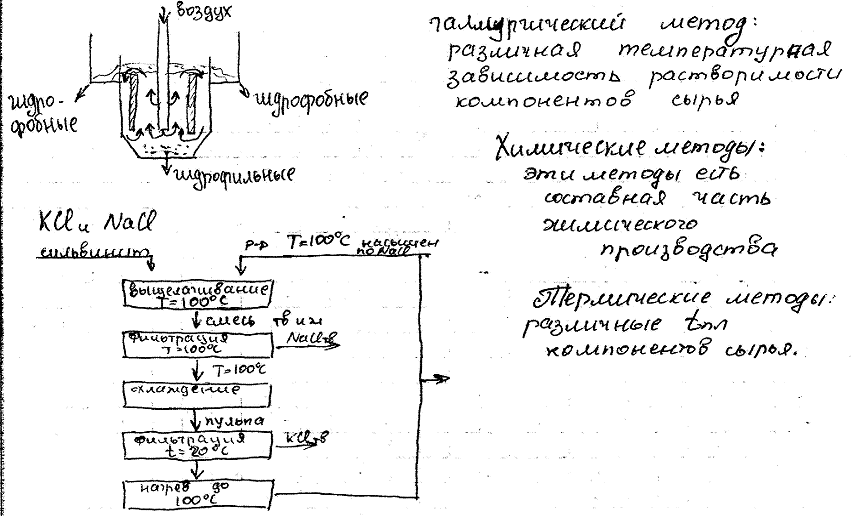 воздух
гидро-
фобные
гидрофобные
гидрофильные
галлургический метод:
различная температурная
зависимость растворимости
компонентов сырья
Химические методы:
эти методы есть
составная часть
химического
производства
Термические методы:
различные tпл
компонентов сырья.
KCl и NaCl
сильвинит
р-р T=100°C насыщен
по NaCl
выщелачивание
T=100°C
смесь тв и ж
фильтрация
T=100°C
NaClтв
T=100°C
охлаждение
пульпа
фильтрация
t=20°C
KClтв
нагрев до
100°C